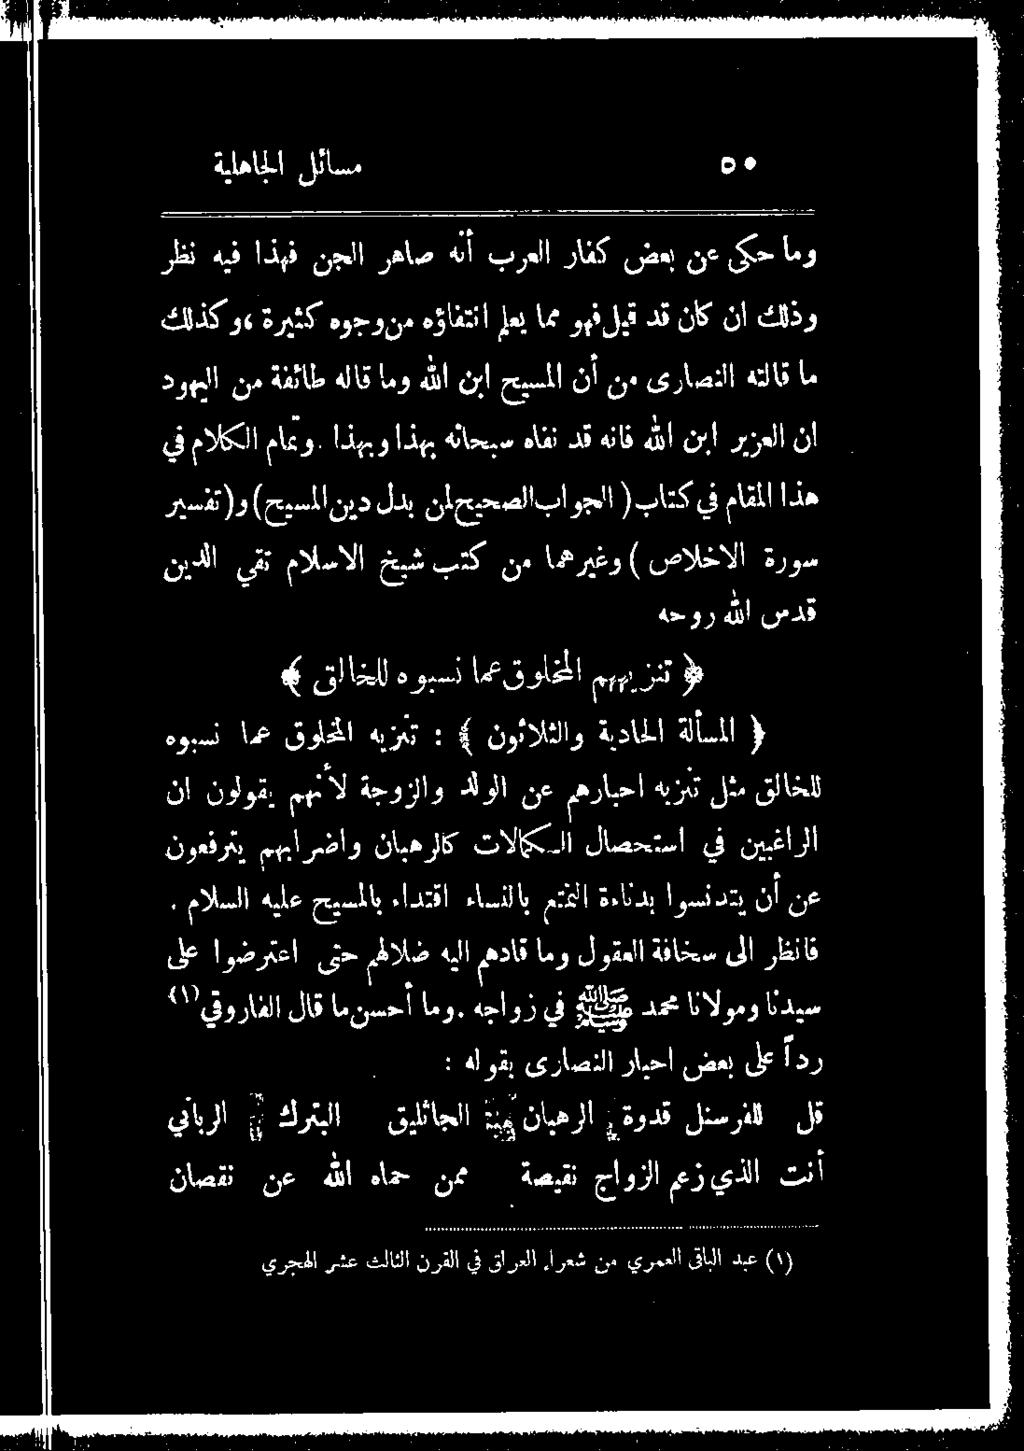 ٥٠ مسائل الجاهلية
وما حكى عن بعض كفار العرب أنه صاهر الجن فهذا فيه نظر
وذلك ان كان قد قيل فهو مما يعلم انتفاؤه من وجوه كثيرة ، وكذلك
ما قالته النصارى من أن المسيح ابن الله وما قاله طائفة من اليهود
ان العزير ابن الله فانه قد نفاه سبحانه بهذا وبهذا . وتمام الكلام في
هذا المقام في كتاب ( الجواب الصحيح لمن بدل دين المسيح ) و ( تفسير
سورة الاخلاص ) وغيرهما من كتب شيخ الاسلام تقي الدين
قدس الله روحه
﴿ تنزيههم المخلوق عما نسبوه للخالق ﴾
﴿ المسألة الحادية والثلاثون ﴾ : تنزيه المخلوق عما نسبوه
للخالق مثل تنزيه احبارهم عن الولد والزوجة لأنهم يقولون ان
الراغبين في استحصال الكمالات كالرهبان واضرابهم يترفعون
عن أن يتدنسوا بدناءة التمتع بالنساء اقتداء بالمسيح عليه السلام .
فانظر الى سخافة العقول وما قادهم اليه ضلالهم حتى اعترضوا على
سيدنا ومولانا محمد ﷺ في زواجه . وما أحسن ما قال الفاروقي (١)
رداً على بعض احبار النصارى بقوله :
قل للفرسنل قدوة الرهبان الجاثليق البترك الرباني
أنت الذي زعم الزواج نقيصة ممن حماه الله عن نقصان
(١) عبد الباقي العمري من شعراء العراق في القرن الثالث عشر الهجري